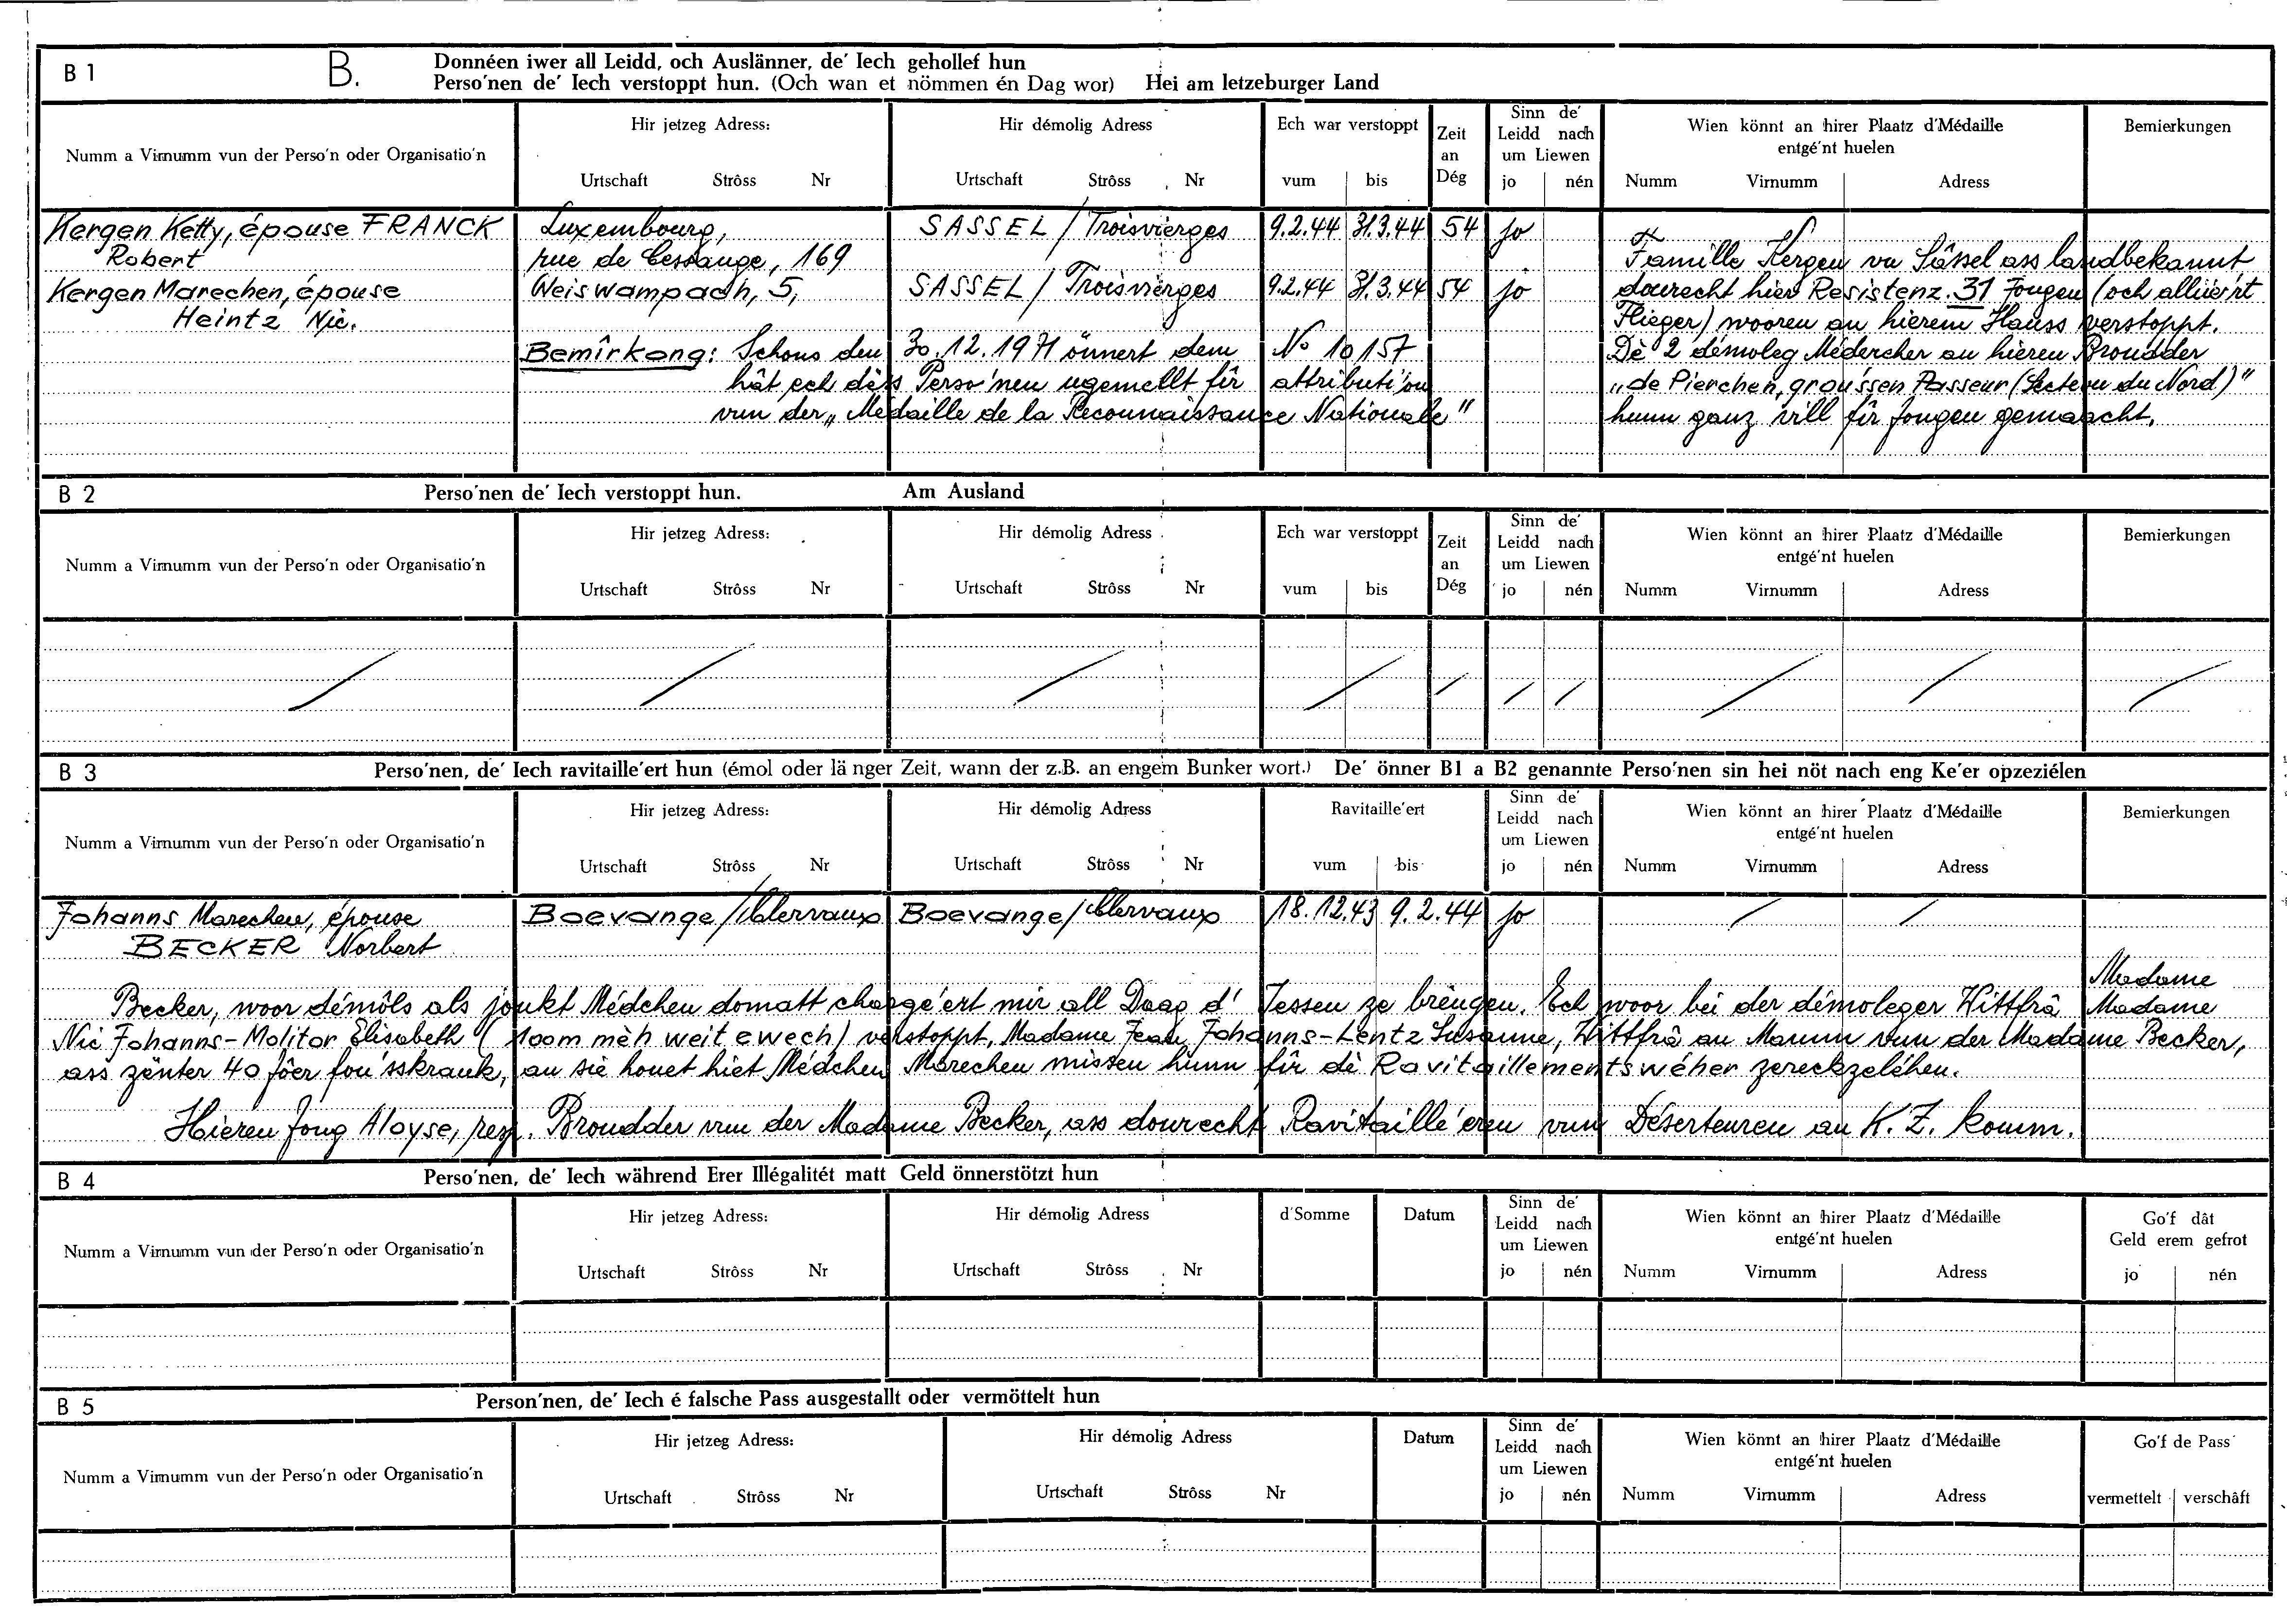 B 1 B. Donnéen iwer all Leidd, och Auslänner, de' Iech gehollef hun
Perso'nen de' Iech verstoppt hun. (Och wan et nömmen én Dag wor) Hei am letzeburger Land
Numm a Virnumm vun der Perso'n oder Organisatio'n
Hir jetzeg Adress:
Urtschaft Strôss Nr
Hir démolig Adress
Urtschaft Strôss Nr
Ech war verstoppt
vum bis
Zeit
an
Dég
Sinn de'
Leidd nach
um Liewen
jo nén
Wien könnt an hirer Plaatz d'Médaille
entgé'nt huelen
Numm Virnumm Adress
Bemierkungen
Kergen Ketty, épouse FRANCK
Robert
Luxembourg,
rue de Cessange, 169
SASSEL / Troisvierges
9.2.44 31.3.44 54 jo
Kergen Marechen, épouse
Heintz Nic.
Weiswampach, 5,
SASSEL / Troisvierges
9.2.44 31.3.44 54 jo
Famille Kergen vu Sâssel ass landbekannt
dourecht hier Resistenz. 31 Jongen (och alliie'rt
Flieger) wooren an hierem Hauss verstoppt.
Dè 2 démoleg Médercher an hieren Broudder
"de Pierchen, grou'ssen Passeur (Secteur du Nord)"
hunn ganz vill fir Jongen gemaacht.
Bemîrkong: Schons den 30.12.1971 önnert dem No 10157
hât ech dès Perso'nen ugemellt fîr attributi'on
vun der "Médaille de la Reconnaissance Nationale"
B 2 Perso'nen de' Iech verstoppt hun. Am Ausland
Numm a Virnumm vun der Perso'n oder Organisatio'n
Hir jetzeg Adress:
Urtschaft Strôss Nr
Hir démolig Adress
Urtschaft Strôss Nr
Ech war verstoppt
vum bis
Zeit
an
Dég
Sinn de'
Leidd nach
um Liewen
jo nén
Wien könnt an hirer Plaatz d'Médaille
entgé'nt huelen
Numm Virnumm Adress
Bemierkungen
B 3 Perso'nen, de' Iech ravitaille'ert hun (émol oder länger Zeit, wann der z.B. an engem Bunker wort.) De' önner B1 a B2 genannte Perso'nen sin hei nöt nach eng Ke'er opzeziélen
Numm a Virnumm vun der Perso'n oder Organisatio'n
Hir jetzeg Adress:
Urtschaft Strôss Nr
Hir démolig Adress
Urtschaft Strôss Nr
Ravitaille'ert
vum bis
Sinn de'
Leidd nach
um Liewen
jo nén
Wien könnt an hirer Plaatz d'Médaille
entgé'nt huelen
Numm Virnumm Adress
Bemierkungen
Johanns Marechen, épouse
BECKER Norbert
Boevange/Clervaux
Boevange/Clervaux
18.12.43 9.2.44 jo
Madame
Becker, woor démôls als jonkt Médchen domatt chargé'ert mir all Daag d' Iessen ze brèngen. Ech woor bei der démoleger Wittfrâ Madame
Nic Johanns-Molitor Elisabeth ( mèh weit ewech) verstoppt, Madame Jean Johanns-Lentz Susanne, Wittfrâ an Mamm vun der Madame Becker,
ass zënter 40 Jôer fou'sskrank, an sie houet hiet Médchen Marechen missen hunn fîr dè Ravitaillementswéher zereckzeléhen.
Hieren Jong Aloyse, resp. Broudder vun der Madame Becker, ass dourecht Ravitaille'eren vun Déserteuren an K.Z. komm.
B 4 Perso'nen, de' Iech während Erer Illégalitét matt Geld önnerstötzt hun
Numm a Virnumm vun der Perso'n oder Organisatio'n
Hir jetzeg Adress:
Urtschaft Strôss Nr
Hir démolig Adress
Urtschaft Strôss Nr
d'Somme
Datum
Sinn de'
Leidd nach
um Liewen
jo nén
Wien könnt an hirer Plaatz d'Médaille
entgé'nt huelen
Numm Virnumm Adress
Go'f dât
Geld erem gefrot
jo nén
B 5 Person'nen, de' Iech é falsche Pass ausgestallt oder vermöttelt hun
Numm a Virnumm vun der Perso'n oder Organisatio'n
Hir jetzeg Adress:
Urtschaft Strôss Nr
Hir démolig Adress
Urtschaft Strôss Nr
Datum
Sinn de'
Leidd nach
um Liewen
jo nén
Wien könnt an hirer Plaatz d'Médaille
entgé'nt huelen
Numm Virnumm Adress
Go'f de Pass
vermettelt verschâft